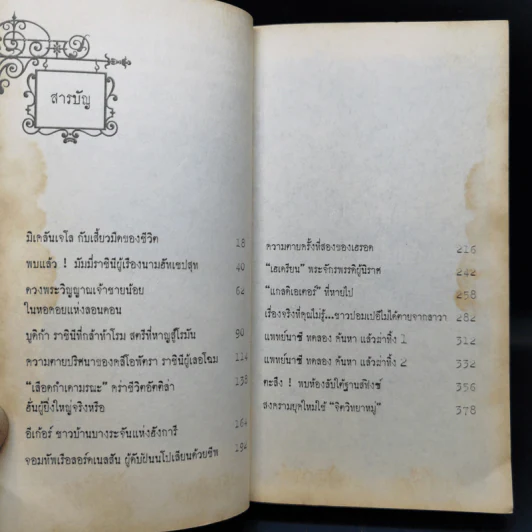 สารบัญ
มิเคลันเจโล กับเสี้ยวมืดของชีวิต 18
พบแล้ว ! มัมมี่ราชินีผู้เรืองนามฮัทเชปสุท 40
ดวงพระวิญญาณเจ้าชายน้อย 62
ในหอคอยแห่งลอนดอน
บูดิก้า ราชินีที่กล้าท้าโรม สตรีที่หาญสู้โรมัน 90
ความตายปริศนาของคลีโอพัตรา ราชินีผู้เลอโฉม 114
"เลือดกำเดามรณะ" คร่าชีวิตอัตติล่า 138
ฮั่นผู้ยิ่งใหญ่จริงหรือ
อีเกอร์ ชาวบ้านบางระจันแห่งฮังการี 164
จอมทัพเรือลอร์ดเนลสัน ผู้ดับฝันนโปเลียนด้วยชีพ 194
ความตายครั้งที่สองของเฮรอด 216
"เฮเดรียน" พระจักรพรรดิผู้นิราศ 242
"แกลดิเอเตอร์" ที่หายไป 258
เรื่องจริงที่คุณไม่รู้...ชาวปอมเปอีไม่ได้ตายจากลาวา 282
แพทย์นาซี ทดลอง ค้นหา แล้วฆ่าทิ้ง 1 312
แพทย์นาซี ทดลอง ค้นหา แล้วฆ่าทิ้ง 2 332
ตะลึง ! พบห้องลับใต้ฐานสฟิงซ์ 356
สงครามยุคใหม่ใช้ "จิตวิทยาหมู่" 378